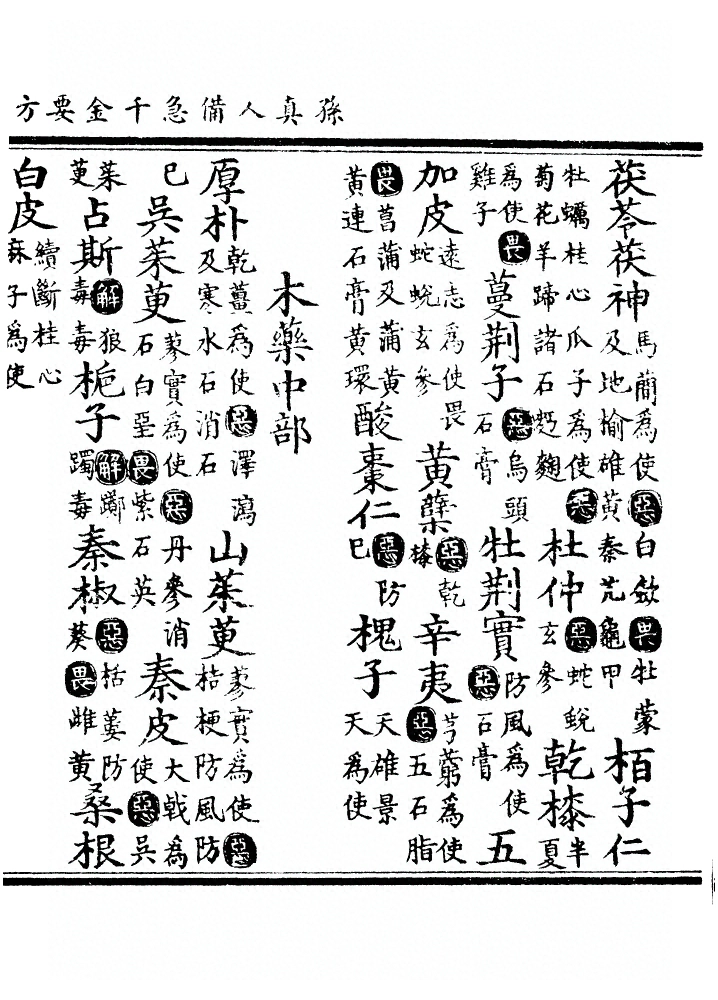 孫真人備急千金要方
茯苓茯神馬藺為使惡白斂畏牡蒙及地榆雄黃秦艽龜甲栢子仁
牡蠣桂心瓜子為使畏菊花羊蹄諸石麪麴杜仲惡蛇蛻玄參乾漆半夏
為使畏雞子蔓荊子惡烏頭石膏牡荊實防風為使惡石膏五
加皮遠志為使畏蛇蛻玄參黃蘗惡乾漆辛夷芎藭為使惡五石脂
畏菖蒲及蒲黃黃連石膏黃環酸棗仁惡防巳槐子天雄景天為使
木藥中部
厚朴乾薑為使惡澤瀉及寒水石消石山茱萸蓼實為使惡桔梗防風防
巳吳茱萸蓼實為使惡丹參消石白堊畏紫石英秦皮大戟為使惡吳
茱萸占斯解狼毒毒梔子解躑躅毒秦椒惡栝蔞防葵畏雌黃桑根
白皮續斷桂心麻子為使